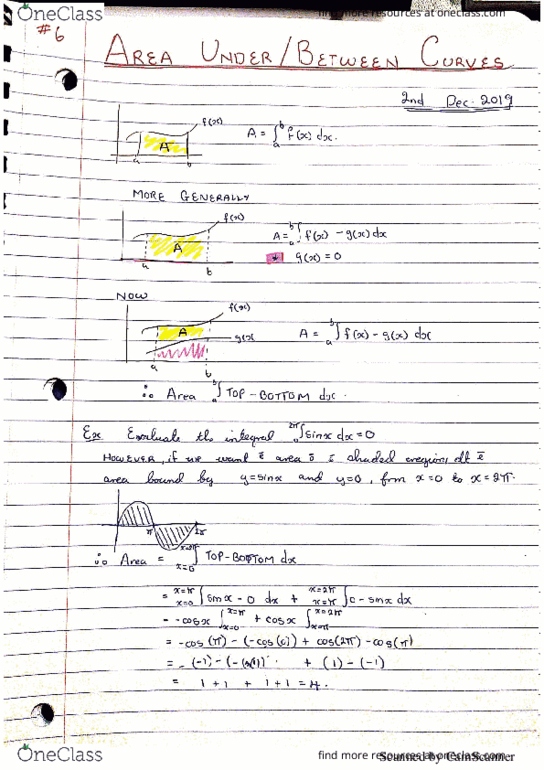 OneClass
find more resources at oneclass.com
#6
AREA UNDER/BETWEEN CURVES
2nd Dec. 2019
f(x)
A
a b
A = ∫ₐᵇ f(x) dx.
MORE GENERALLY
f(x)
A
a b
A = ₐᵇ∫ f(x) - g(x) dx
* g(x) = 0
NOW
f(x)
A
g(x)
a b
A = ₐᵇ∫ f(x) - g(x) dx
∴ Area ₐᵇ∫ TOP - BOTTOM dx.
Ex Evaluate the integral ₀²ᵖⁱ∫ sinx dx = 0
HOWEVER, if we want area shaded
area bound by y=sinx and y=0, from x=0 to x=2π.
π 2π
∴ Area = x=0 x=2π ∫ TOP-BOTTOM dx
= x=0 x=π ∫ sinx - 0 dx + x=π x=2π ∫ 0 - sinx dx
= -cosx ∫ x=0 x=π + cosx ∫ x=π x=2π
= -cos(π) - (-cos(0)) + cos(2π) - cos(π)
= -(-1) - + (1) - (-1)
= 1+1 + 1+1 = 4.
OneClass
find more resources at oneclass.com
Scanned by CamScanner